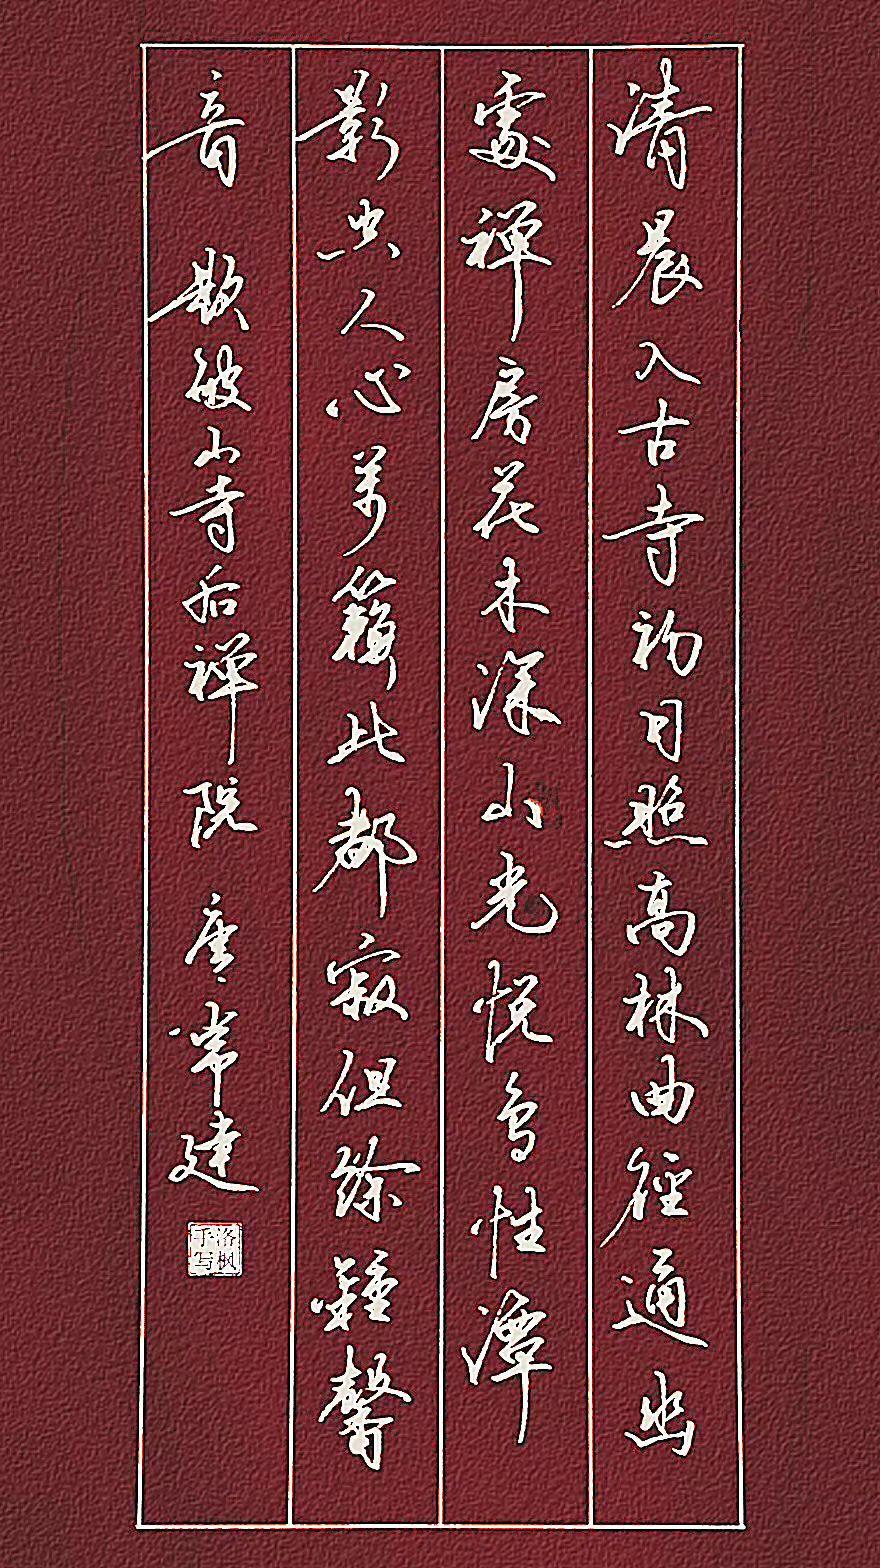 清晨入古寺初日照高林曲径通幽
處禅房花木深山光悦鸟性潭
影空人心萬籟此都寂但餘鐘磬
音 题破山寺后禅院 唐 常建
洛枫手写